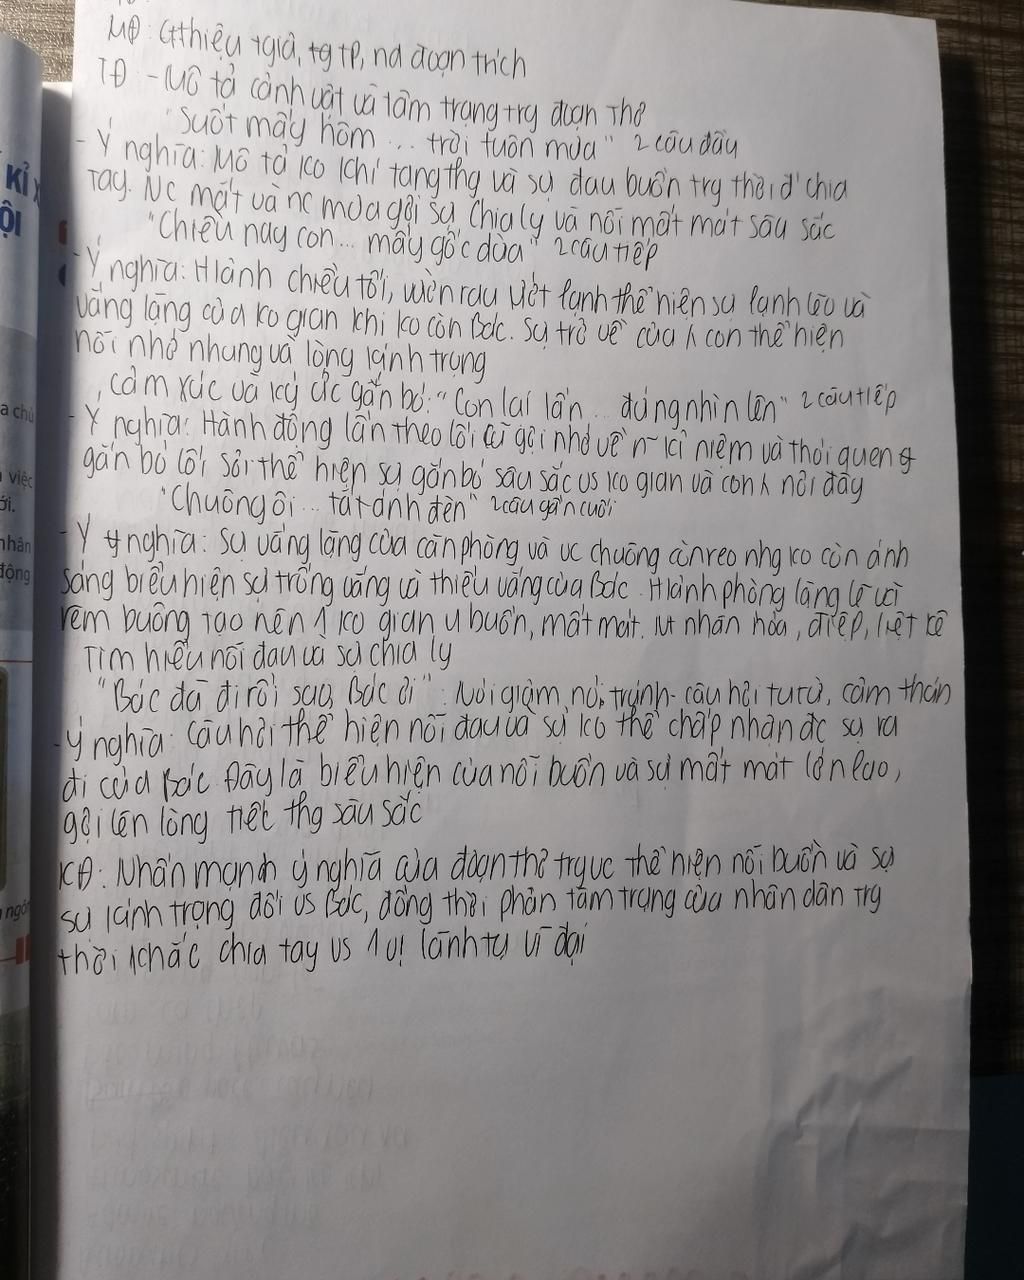 MĐ: Gthiệu tgiả, tg tp, nd đoạn trích
TĐ - Mô tả cảnh vật và tâm trạng trg đoạn thơ
"Suốt mấy hôm ... trời tuôn mưa" 2 câu đầu
- Ý nghĩa: Mô tả ko khí tang thg và sự đau buồn trg thời đ' chia
tay. Nc mắt và nc mưa gợi sự chia ly và nỗi mất mát sâu sắc
"Chiều nay con ... mấy gốc dừa" 2 câu tiếp
- Ý nghĩa: H'ảnh chiều tối, vườn rau ướt lạnh thể hiện sự lạnh lẽo và
vắng lặng của ko gian khi ko còn Bác. Sự trở về của con thể hiện
nỗi nhớ nhung và lòng kính trọng
, cảm xúc và ký ức gắn bó: "Con lại lần ... đứng nhìn lên" 2 câu tiếp
- Ý nghĩa: Hành động lần theo lối cũ gợi nhớ về n~ kỉ niệm và thói quen
gắn bó lối sỏi thể hiện sự gắn bó sâu sắc vs ko gian và con nơi đây
"Chuông ôi ... tắt ánh đèn" 2 câu gần cuối
- Ý nghĩa: Sự vắng lặng của căn phòng và vc chuông còn reo nhg ko còn ánh
sáng biểu hiện sự trống vắng và thiếu vắng của Bác. H'ảnh phòng lặng lẽ với
rèm buông tạo nên 1 ko gian u buồn, mất mát. NT nhân hóa, điệp, liệt kê
Tìm hiểu nỗi đau và sự chia ly
"Bác đã đi rồi sao, Bác ơi": Nói giảm, nói tránh - câu hỏi tu từ, cảm thán
- Ý nghĩa: Câu hỏi thể hiện nỗi đau và sự ko thể chấp nhận đc sự ra
đi của Bác. Đây là biểu hiện của nỗi buồn và sự mất mát lớn lao,
gợi lên lòng tiếc thg sâu sắc
KĐ: Nhấn mạnh ý nghĩa của đoạn thơ trg vc thể hiện nỗi buồn và sự
sự kính trọng đối vs Bác, đồng thời phản tâm trạng của nhân dân trg
thời khắc chia tay vs 1 vị lãnh tụ vĩ đại